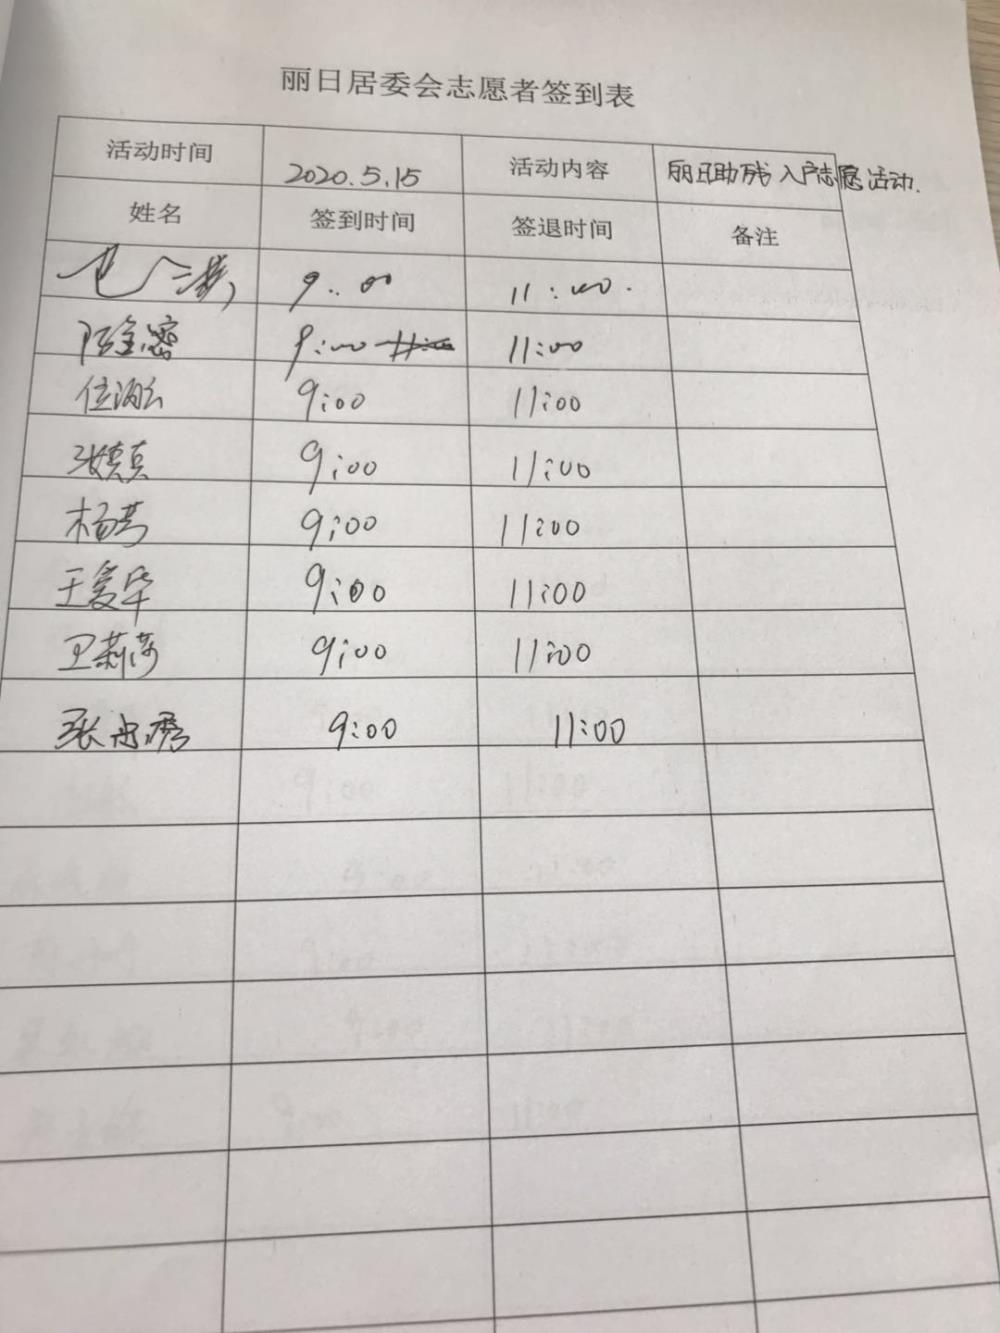 丽日居委会志愿者签到表
活动时间 2020.5.15 活动内容 丽日助残入户志愿活动.
姓名 签到时间 签退时间 备注
9:00 11:00.
9:00 11:00
9:00 11:00
9:00 11:00
杨芳 9:00 11:00
王爱华 9:00 11:00
卫莉莎 9:00 11:00
张 9:00 11:00